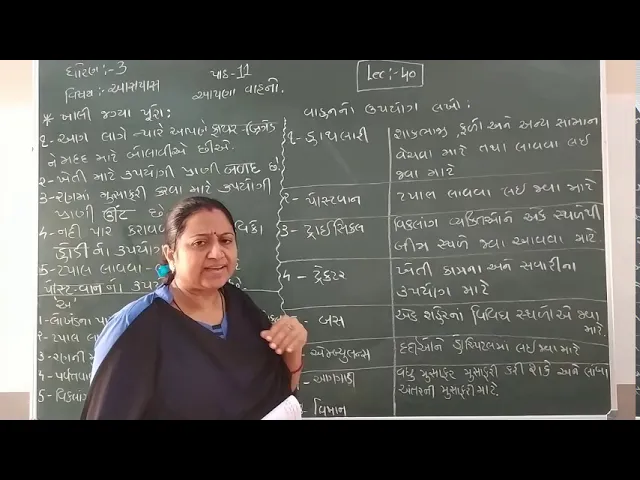 ધોરણ:- 3
પાઠ-11
Lec:- 40
વિષય:- આસપાસ
આપણા વાહનો.
* ખાલી જગ્યા પૂરો:
૧- આગ લાગે ત્યારે આપણે ફાયર-બ્રિગેડ
ને મદદ માટે બોલાવીએ છીએ.
૨- ખેતી માટે ઉપયોગી પ્રાણી બળદ છે.
૩- રણમાં મુસાફરી કરવા માટે ઉપયોગી
પ્રાણી ઊંટ છે
4- નદી પાર કરાવવા
હોડી નો ઉપયોગ
5- ટપાલ લાવવા -
પોસ્ટ-વાન નો ઉપયો
'અ'
1- લોખંડના પા
૨- ટપાલ લા
૩- રણની
4- પર્વતવા
5- વિકલાં
વાહનનો ઉપયોગ લખો:
૧- હાથલારી
શાકભાજી, ફળો અને અન્ય સામાન
વેચવા માટે તથા લાવવા લઈ
જવા માટે
૨- પોસ્ટવાન
ટપાલ લાવવા લઈ જવા માટે
૩- ટ્રાઈસિકલ
વિકલાંગ વ્યક્તિઓને એક સ્થળેથી
બીજા સ્થળે જવા આવવા માટે.
4- ટ્રેક્ટર
ખેતી કામના અને સવારીના
ઉપયોગ માટે
- બસ
એક શહેરના વિવિધ સ્થળોએ જવા
માટે.
- એમ્બ્યુલન્સ
દર્દીઓને હોસ્પિટલમાં લઈ જવા માટે
- આગગાડી
વધુ મુસાફર મુસાફરી કરી શકે અને લાંબા
અંતરની મુસાફરી માટે.
- વિમાન